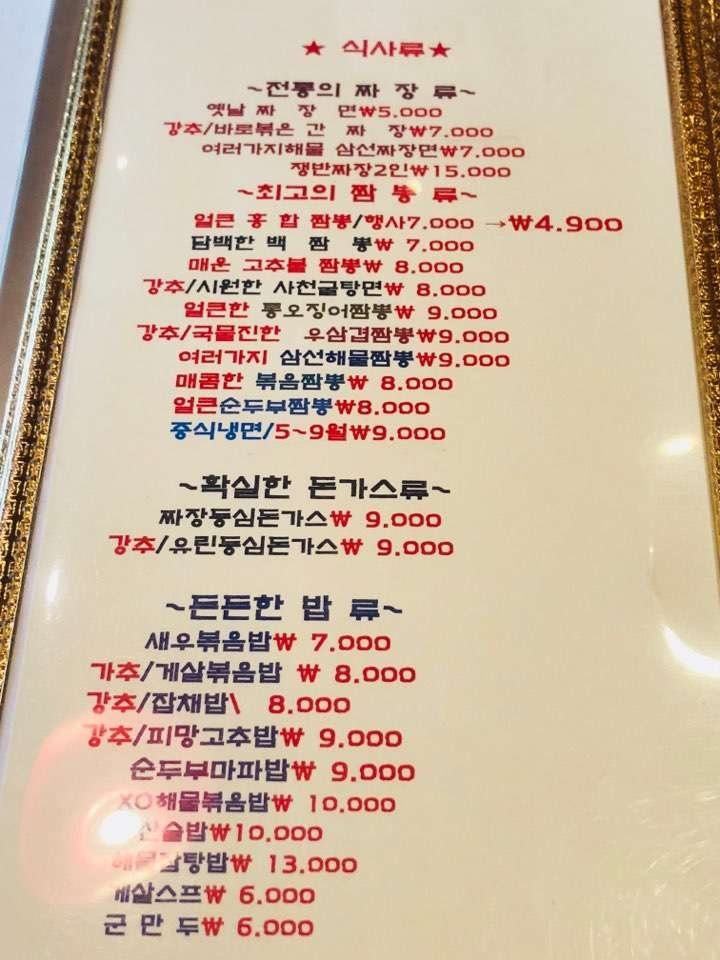 ★ 식사류★
~전통의 짜 장 류~
옛날 짜 장 면₩5.000
강추/바로볶은 간 짜 장₩7.000
여러가지해물 삼선짜장면₩7.000
쟁반짜장2인₩15.000
~최고의 짬 뽕 류~
얼큰 홍 합 짬뽕/행사7.000 →₩4.900
담백한 백 짬 뽕₩ 7.000
매운 고추불 짬뽕₩ 8.000
강추/시원한 사천굴탕면₩ 8.000
얼큰한 통오징어짬뽕₩ 9.000
강추/국물진한 우삼겹짬뽕₩9.000
여러가지 삼선해물짬뽕₩9.000
매콤한 볶음짬뽕₩ 8.000
얼큰순두부짬뽕₩8.000
중식냉면/5~9월₩9.000
~확실한 돈가스류~
짜장등심돈가스₩ 9.000
강추/유린등심돈가스₩ 9.000
~든든한 밥 류~
새우볶음밥₩ 7.000
가추/게살볶음밥 ₩ 8.000
강추/잡채밥\ 8.000
강추/피망고추밥₩ 9.000
순두부마파밥₩ 9.000
XO해물볶음밥₩ 10.000
산슬밥₩10.000
해물잡탕밥₩ 13.000
게살스프₩ 6.000
군 만 두₩ 6.000